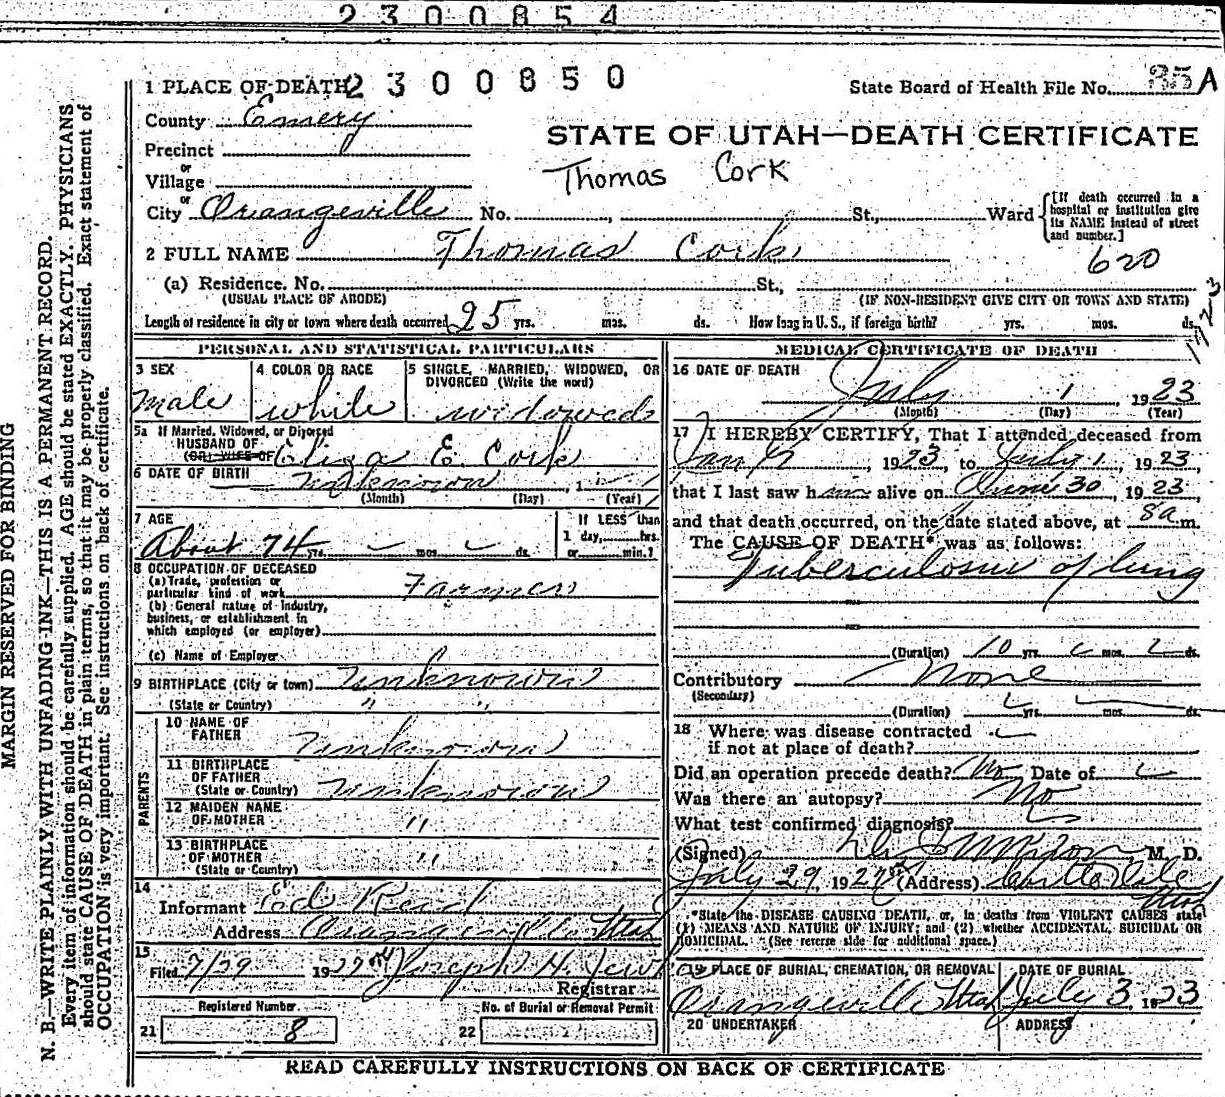 2300854
1 PLACE OF DEATH 2300850 State Board of Health File No. 85A
County Emery
STATE OF UTAH—DEATH CERTIFICATE
Precinct
or
Village
Thomas Cork
or
City Orangeville No. , St., Ward
[If death occurred in a hospital or institution give its NAME instead of street and number.]
2 FULL NAME Thomas Cork
620
(a) Residence. No. St.,
(USUAL PLACE OF ABODE) (IF NON-RESIDENT GIVE CITY OR TOWN AND STATE)
1723
Length of residence in city or town where death occurred 25 yrs. mos. ds. How long in U. S., if foreign birth? yrs. mos. ds.
PERSONAL AND STATISTICAL PARTICULARS
3 SEX
Male
4 COLOR OR RACE
white
5 SINGLE, MARRIED, WIDOWED, OR DIVORCED (Write the word)
widowed
5a If Married, Widowed, or Divorced
HUSBAND OF
(OR) WIFE OF Eliza E. Cork
6 DATE OF BIRTH unknown , 1
(Month) (Day) (Year)
7 AGE
About 74 yrs. mos. ds.
If LESS than
1 day, hrs.
or min.?
8 OCCUPATION OF DECEASED
(a) Trade, profession or
particular kind of work Farmer
(b) General nature of industry,
business, or establishment in
which employed (or employer)
(c) Name of Employer
9 BIRTHPLACE (City or town) Unknown
(State or Country) " "
PARENTS
10 NAME OF
FATHER Unknown
11 BIRTHPLACE
OF FATHER
(State or Country) Unknown
12 MAIDEN NAME
OF MOTHER "
13 BIRTHPLACE
OF MOTHER "
(State or Country)
14
Informant Ed
Address Orangeville Utah
15
Filed 7/29 192 Joseph H. Jewkes
Registrar
Registered Number No. of Burial or Removal Permit
21 8 22
MEDICAL CERTIFICATE OF DEATH
16 DATE OF DEATH
July 1 1923
(Month) (Day) (Year)
17 I HEREBY CERTIFY, That I attended deceased from
Jan , 1923, to July 1, 1923
that I last saw him alive on June 30, 1923
and that death occurred, on the date stated above, at 8 a m.
The CAUSE OF DEATH* was as follows:
Tuberculosis of lung
(Duration) 10 yrs. mos. ds.
Contributory None
(Secondary)
(Duration) yrs. mos. ds.
18 Where was disease contracted
if not at place of death?
Did an operation precede death? No Date of
Was there an autopsy? No
What test confirmed diagnosis?
(Signed) M. D.
July 29, 192 (Address) Castle Dale
Utah
*State the DISEASE CAUSING DEATH, or, in deaths from VIOLENT CAUSES state
(1) MEANS AND NATURE OF INJURY; and (2) whether ACCIDENTAL, SUICIDAL OR
HOMICIDAL. (See reverse side for additional space.)
19 PLACE OF BURIAL, CREMATION, OR REMOVAL
Orangeville Utah
DATE OF BURIAL
July 3, 1923
20 UNDERTAKER ADDRESS
READ CAREFULLY INSTRUCTIONS ON BACK OF CERTIFICATE
MARGIN RESERVED FOR BINDING
N. B.—WRITE PLAINLY WITH UNFADING INK—THIS IS A PERMANENT RECORD.
Every item of information should be carefully supplied. AGE should be stated EXACTLY. PHYSICIANS
should state CAUSE OF DEATH in plain terms, so that it may be properly classified. Exact statement of
OCCUPATION is very important. See instructions on back of certificate.